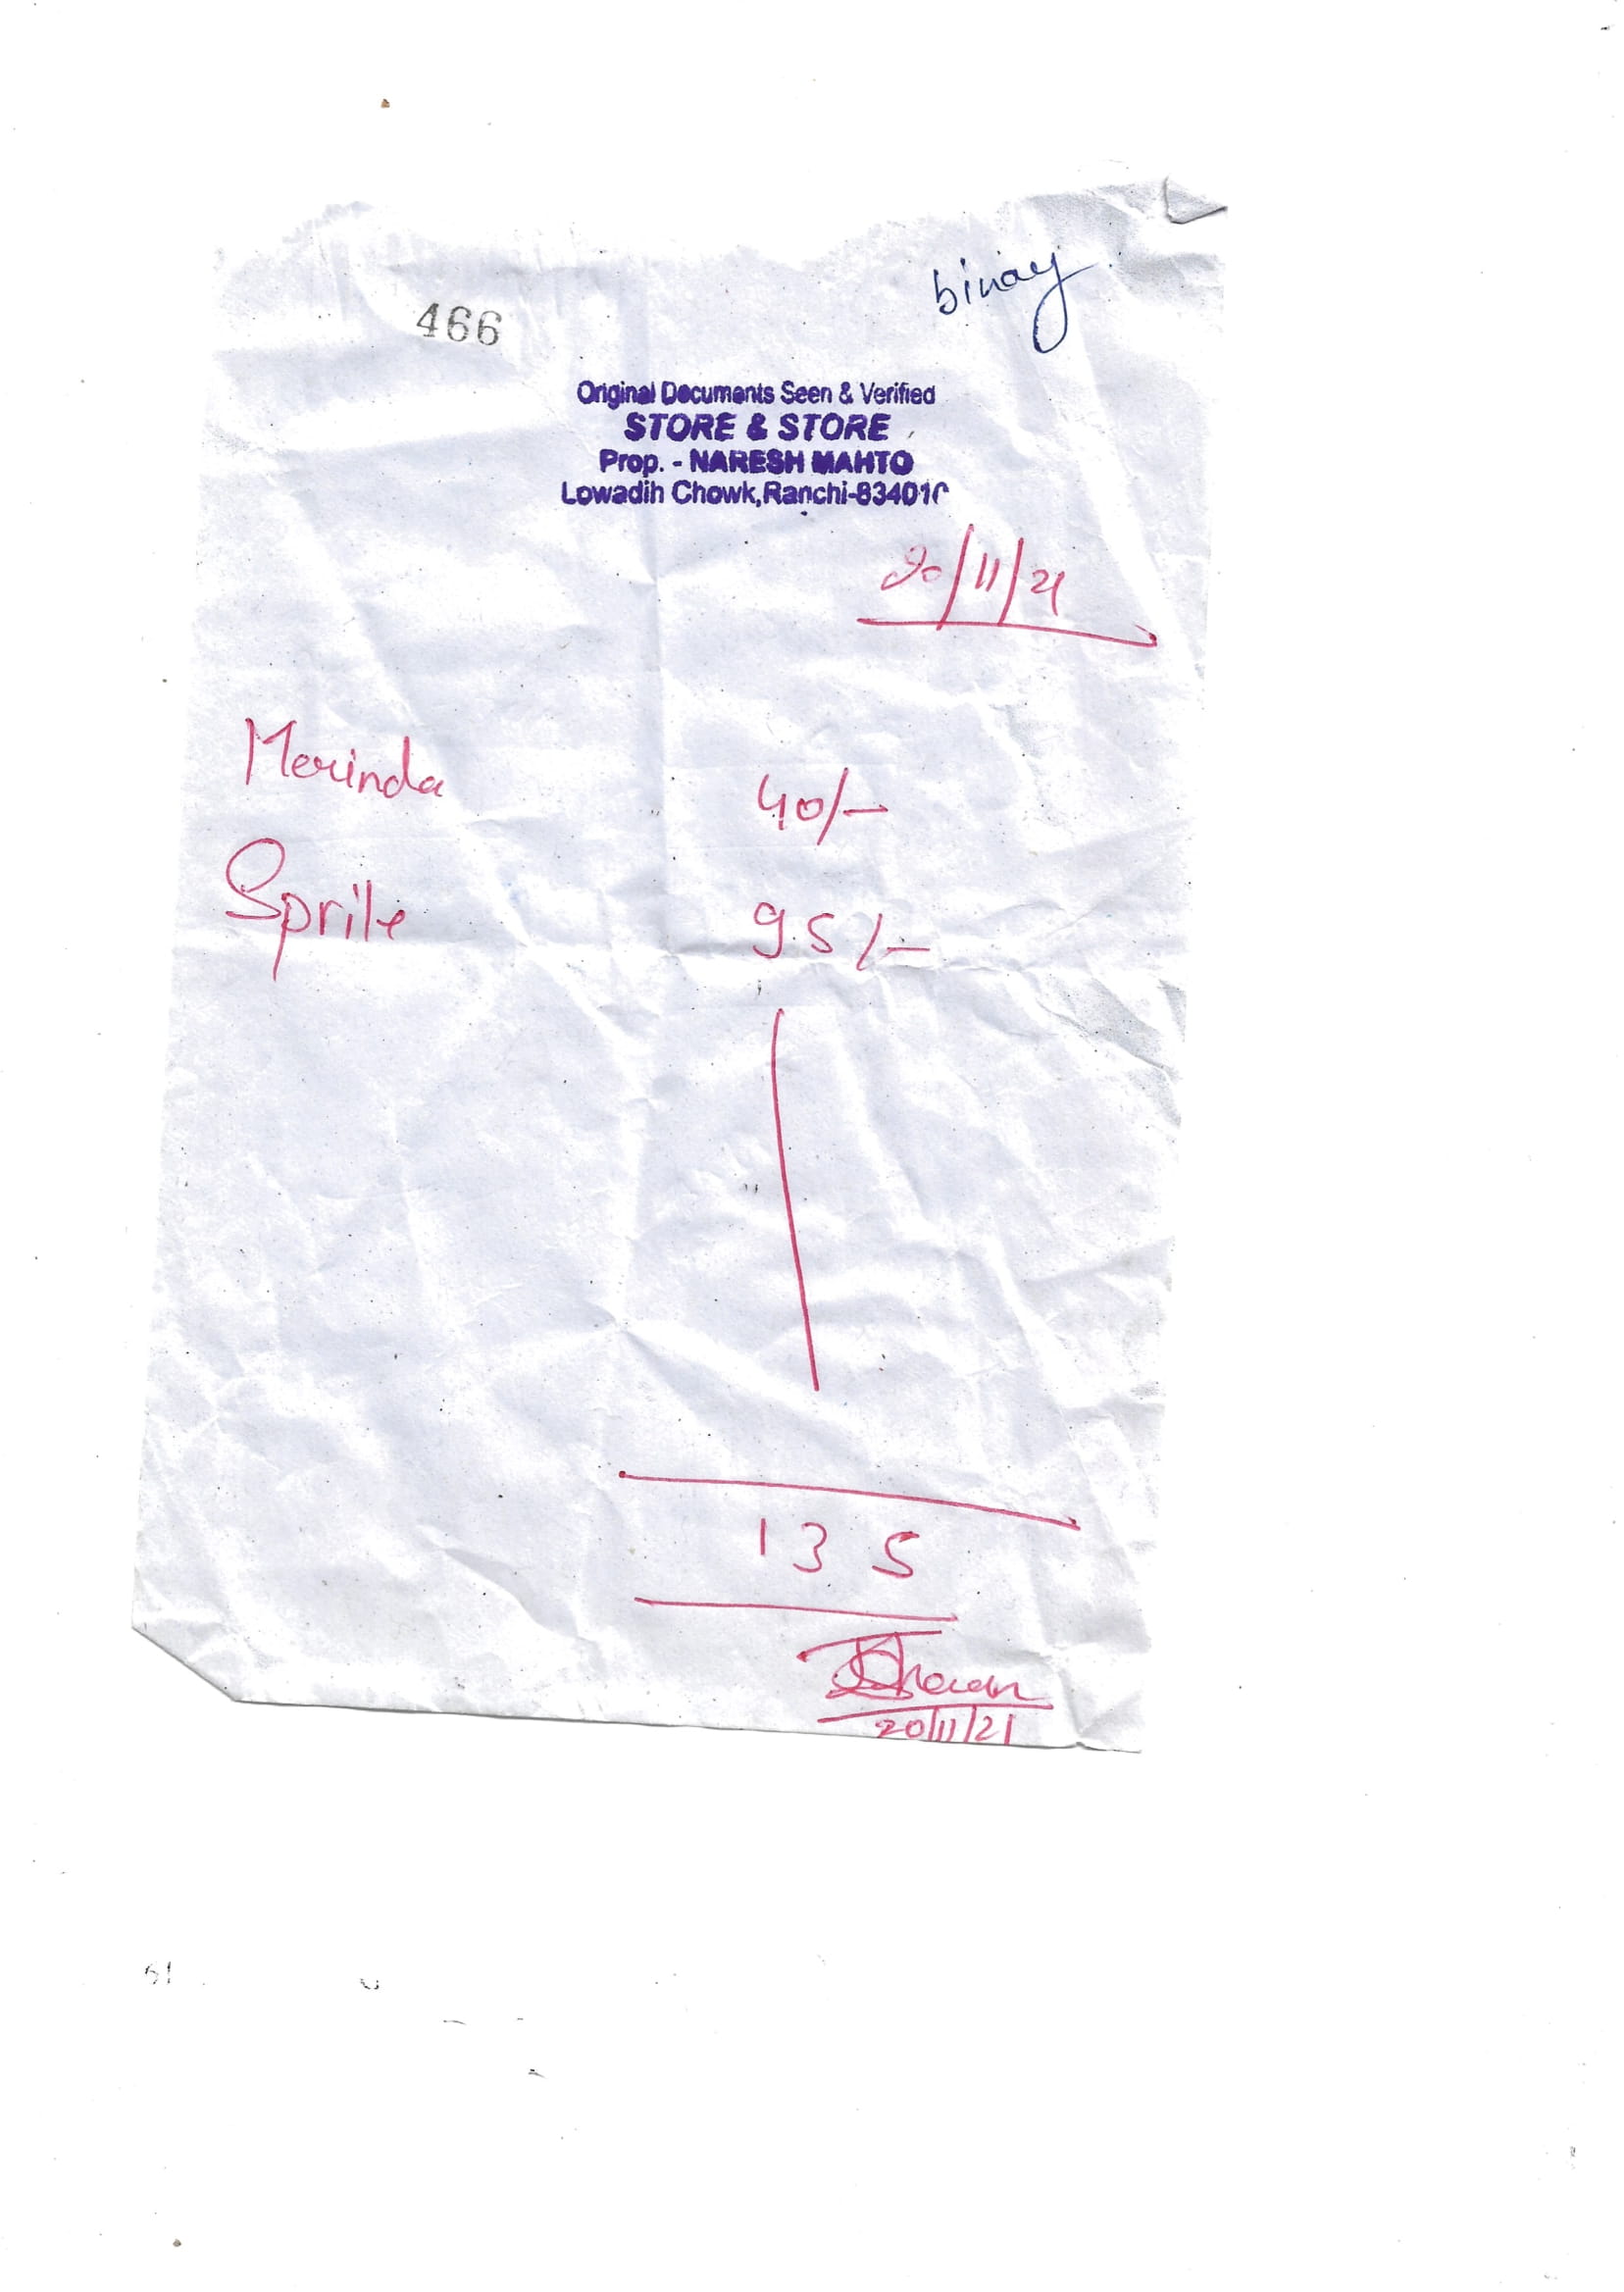 binay
466
Original Documents Seen & Verified
STORE & STORE
Prop. - NARESH MAHTO
Lowadih Chowk, Ranchi-834010
20/11/21
Merinda 40/-
Sprite 95/-
135
20/11/21